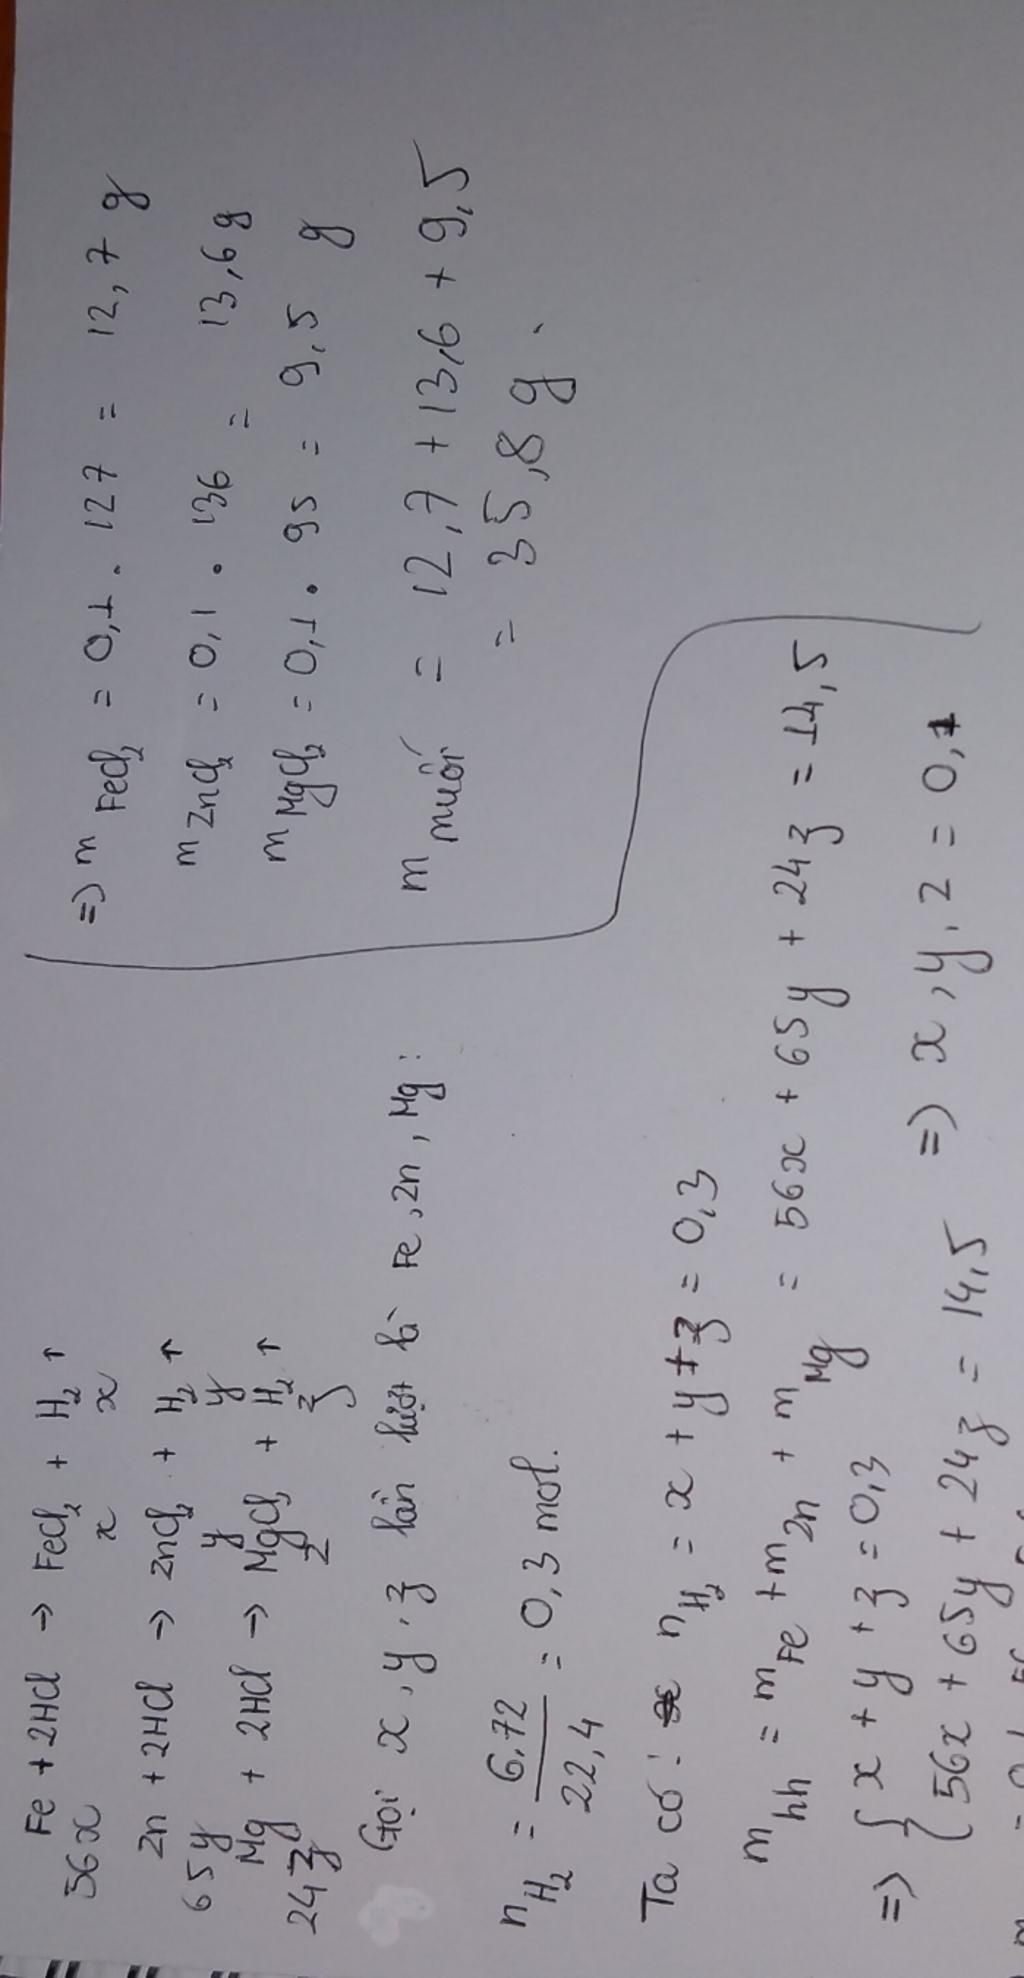 Fe + 2HCl → FeCl₂ + H₂ ↑
56x x x
Zn + 2HCl → ZnCl₂ + H₂ ↑
65y y y
Mg + 2HCl → MgCl₂ + H₂ ↑
24z z z
Gọi x, y, z lần lượt là Fe, Zn, Mg:
n H₂ = 6,72 / 22,4 = 0,3 mol.
Ta có: n H₂ = x + y + z = 0,3
m hh = m Fe + m Zn + m Mg = 56x + 65y + 24z = 14,5
=> { x + y + z = 0,3
56x + 65y + 24z = 14,5 => x, y, z = 0,1
=> m FeCl₂ = 0,1 . 127 = 12,7 g
m ZnCl₂ = 0,1 . 136 = 13,6 g
m MgCl₂ = 0,1 . 95 = 9,5 g
m muối = 12,7 + 13,6 + 9,5
= 35,8 g.